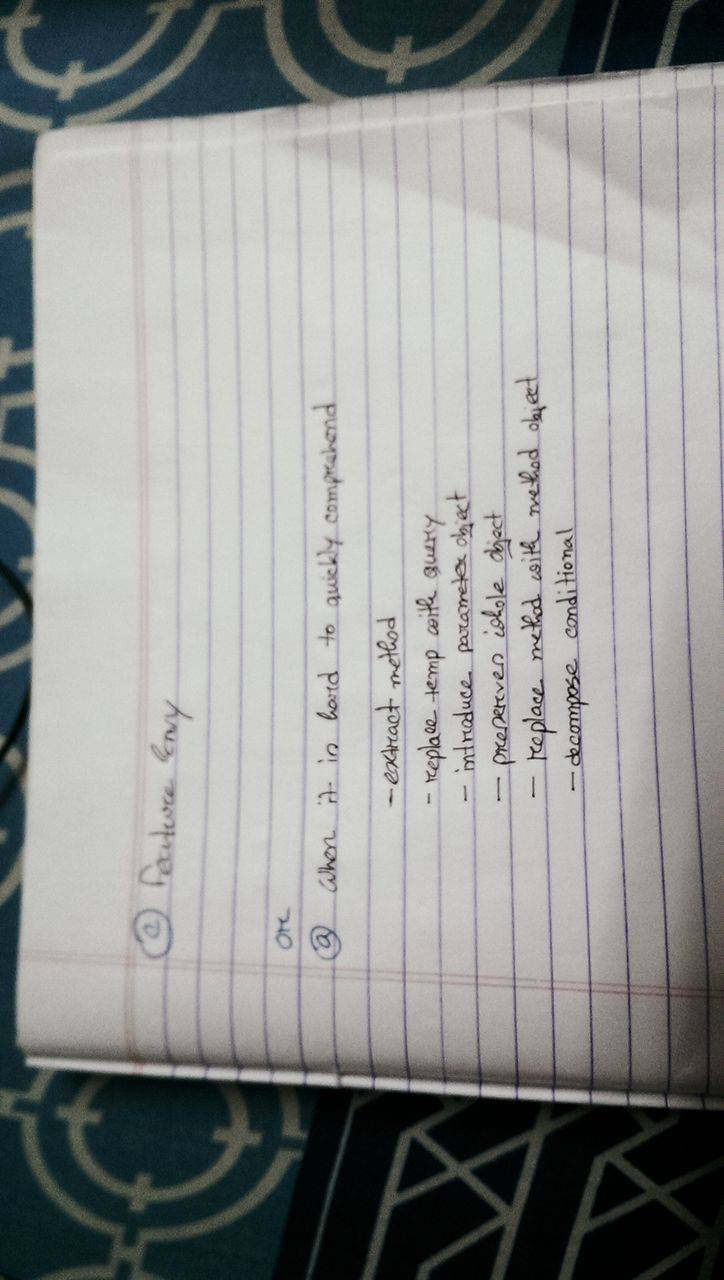 (c) Feature Envy
OR
(a) When it is hard to quickly comprehend
- extract method
- replace temp with query
- introduce parameter object
- preserves whole object
- replace method with method object
- decompose conditional